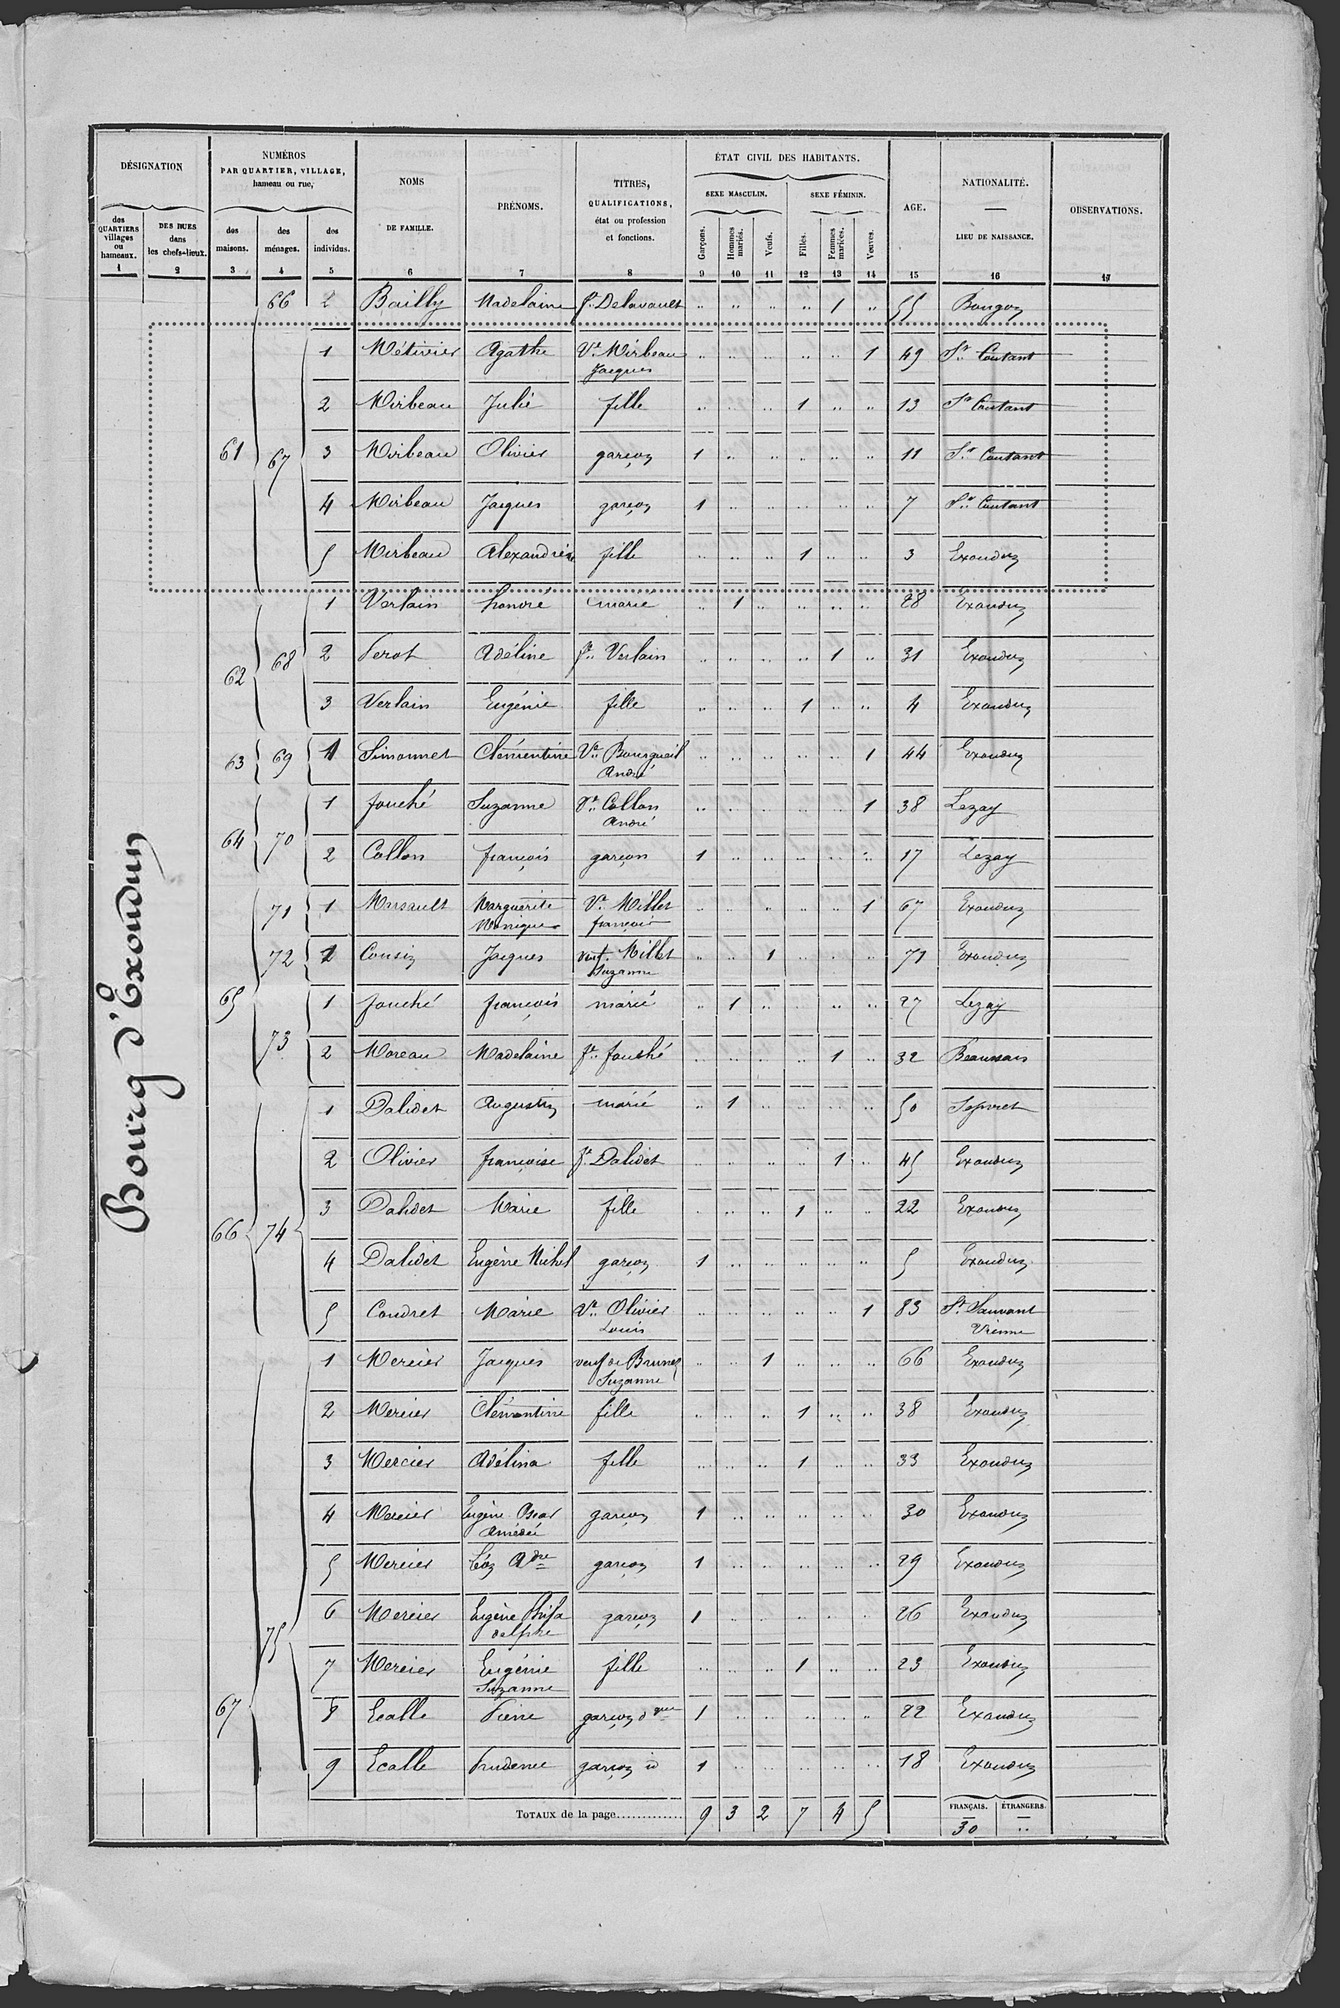 DÉSIGNATION
NUMÉROS PAR QUARTIER, VILLAGE, hameau ou rue,
NOMS DE FAMILLE.
PRÉNOMS.
TITRES, QUALIFICATIONS, état ou profession et fonctions.
ÉTAT CIVIL DES HABITANTS.
SEXE MASCULIN. SEXE FÉMININ.
AGE.
NATIONALITÉ. LIEU DE NAISSANCE.
OBSERVATIONS.
des QUARTIERS villages ou hameaux. DES RUES dans les chefs-lieux. des maisons. des ménages. des individus. Garçons. Hommes mariés. Veufs. Filles. Femmes mariées. Veuves.
1 2 3 4 5 6 7 8 9 10 11 12 13 14 15 16 17
Bourg d'Exoudun
66 2 Bailly Madelaine fe Delavault 1 55 Bougon
61 67 1 Métivier Agathe Ve Mirbeau Jacques 1 49 St Coutant
2 Mirbeau Julie fille 1 13 St Coutant
3 Mirbeau Olivier garçon 1 11 St Coutant
4 Mirbeau Jacques garçon 1 7 St Coutant
5 Mirbeau Alexandrine fille 1 3 Exoudun
62 68 1 Verlain honoré marié 1 28 Exoudun
2 Perot Adéline fe Verlain 1 31 Exoudun
3 Verlain Eugénie fille 1 4 Exoudun
63 69 1 Simonnet Clémentine Ve Bourgueil André 1 44 Exoudun
64 70 1 fouché Suzanne Ve Collon André 1 38 Lezay
2 Collon françois garçon 1 17 Lezay
65 71 1 Marsault Marguerite Monique Ve Millet françois 1 67 Exoudun
72 1 Cousin Jacques veuf Millet Suzanne 1 71 Exoudun
73 1 fouché françois marié 1 27 Lezay
2 Moreau Madelaine fe fouché 1 32 Beaussais
66 74 1 Dalidet Augustin marié 1 50 Sepvret
2 Olivier françoise fe Dalidet 1 45 Exoudun
3 Dalidet Marie fille 1 22 Exoudun
4 Dalidet Eugène Michel garçon 1 5 Exoudun
5 Coudret Marie Ve Olivier Louis 1 83 St Sauvant Vienne
67 75 1 Mercier Jacques veuf de Brunet Suzanne 1 66 Exoudun
2 Mercier Clémentine fille 1 38 Exoudun
3 Mercier Adélina fille 1 33 Exoudun
4 Mercier Eugène Oscar Amédée garçon 1 30 Exoudun
5 Mercier Léon Adre garçon 1 29 Exoudun
6 Mercier Eugène Philadelphe garçon 1 26 Exoudun
7 Mercier Eugénie Suzanne fille 1 23 Exoudun
8 Ecalle Pierre garçon dque 1 22 Exoudun
9 Ecalle Prudence garçon id 1 18 Exoudun
TOTAUX de la page............. 9 3 2 7 4 5
FRANÇAIS. ÉTRANGERS.
30